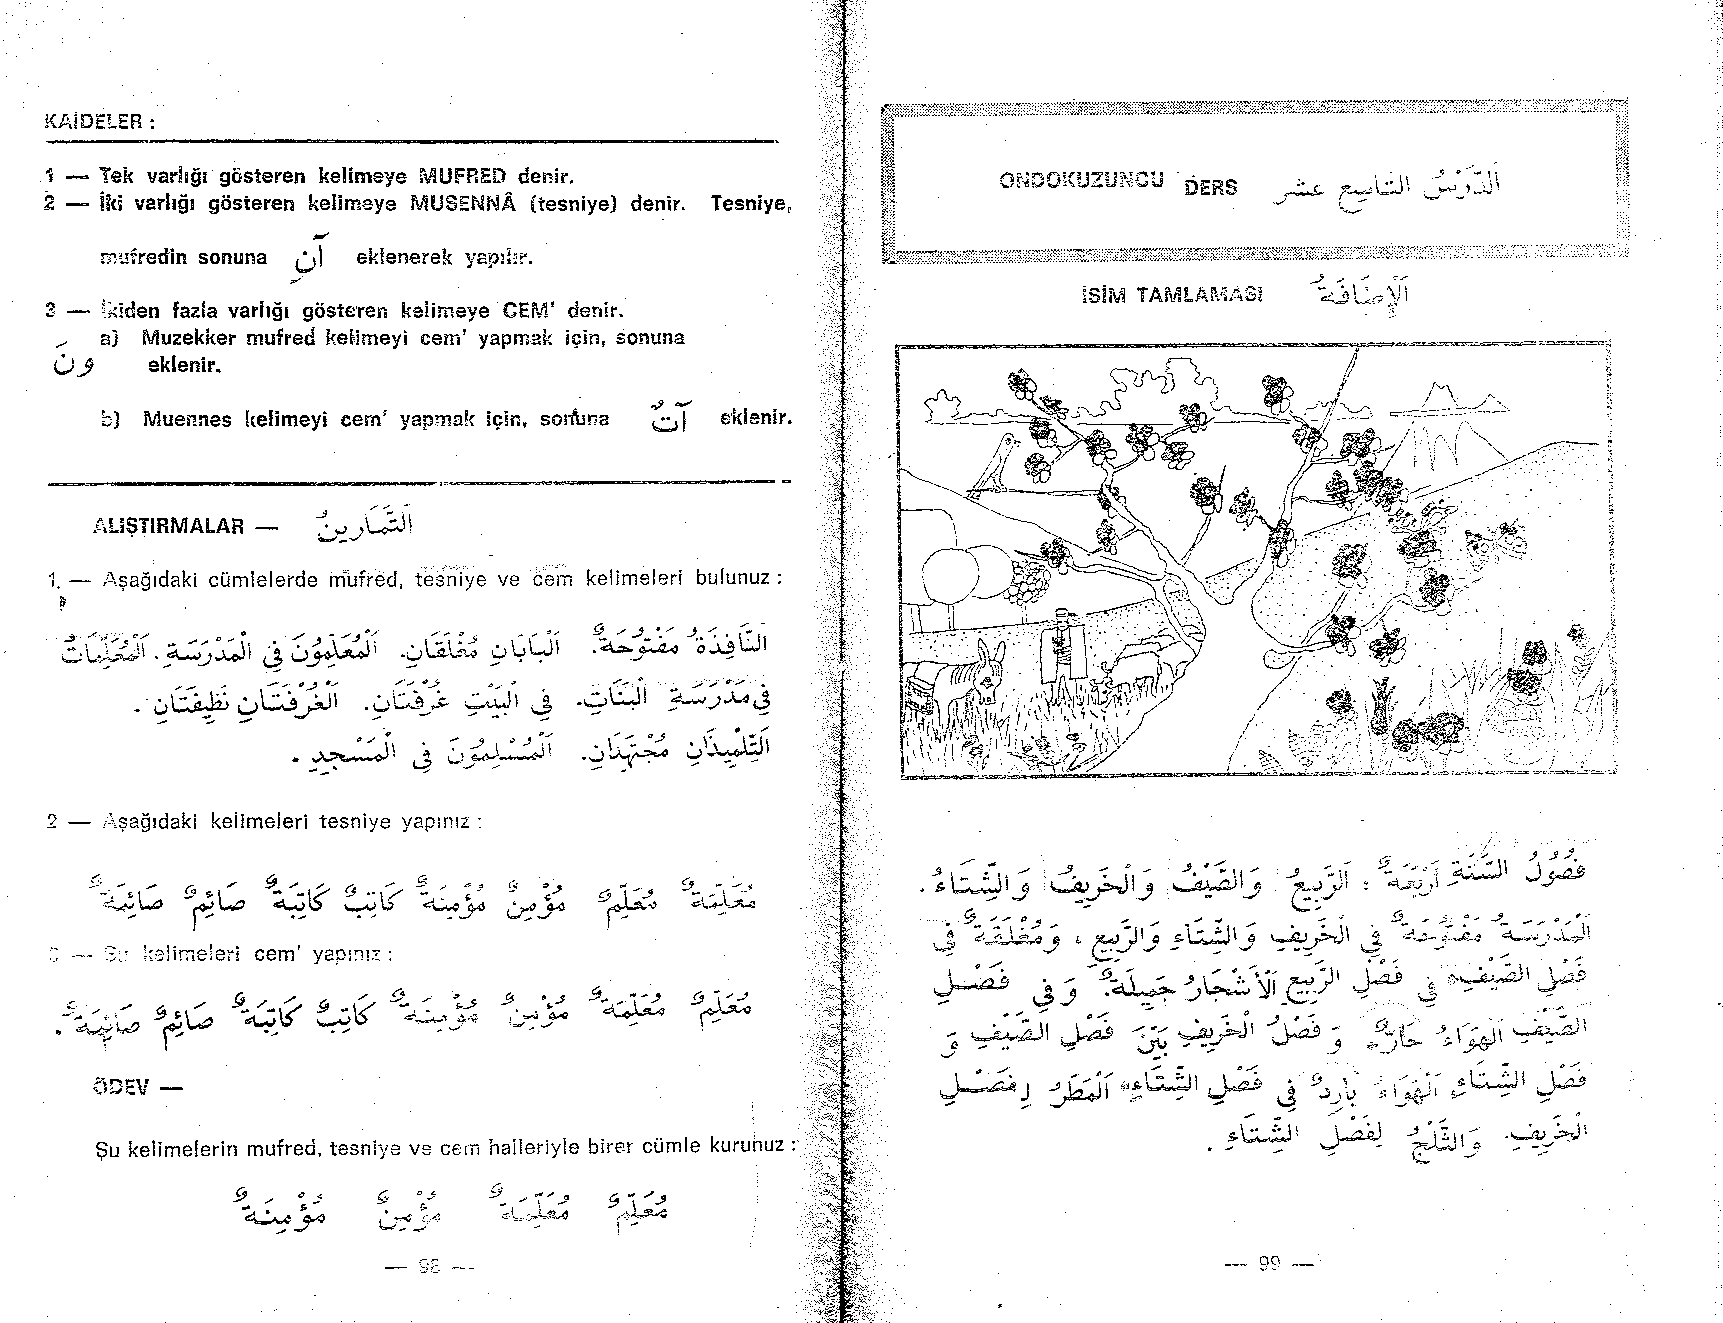 KAİDELER :
1 — Tek varlığı gösteren kelimeye MUFRED denir.
2 — İki varlığı gösteren kelimeye MUSENNÂ (tesniye) denir. Tesniye,
mufredin sonuna آنِ eklenerek yapılır.
3 — İkiden fazla varlığı gösteren kelimeye CEM' denir.
a) Muzekker mufred kelimeyi cem' yapmak için, sonuna
ونَ eklenir.
b) Muennes kelimeyi cem' yapmak için, sonuna آتٌ eklenir.
ALIŞTIRMALAR — اَلتَّمَارِينُ
1. — Aşağıdaki cümlelerde mufred, tesniye ve cem kelimeleri bulunuz :
اَلنَّافِذَةُ مَفْتُوحَةٌ. اَلْبَابَانِ مُغْلَقَانِ. اَلْمُعَلِّمُونَ فِي الْمَدْرَسَةِ. اَلْمُعَلِّمَاتُ
فِي مَدْرَسَةِ الْبَنَاتِ. فِي الْبَيْتِ غُرْفَتَانِ. اَلْغُرْفَتَانِ نَظِيفَتَانِ.
اَلتِّلْمِيذَانِ مُجْتَهِدَانِ. اَلْمُسْلِمُونَ فِي الْمَسْجِدِ.
2 — Aşağıdaki kelimeleri tesniye yapınız :
مُعَلِّمَةٌ مُعَلِّمٌ مُؤْمِنٌ مُؤْمِنَةٌ كَاتِبٌ كَاتِبَةٌ صَائِمٌ صَائِمَةٌ
3 — Şu kelimeleri cem' yapınız :
مُعَلِّمٌ مُعَلِّمَةٌ مُؤْمِنٌ مُؤْمِنَةٌ كَاتِبٌ كَاتِبَةٌ صَائِمٌ صَائِمَةٌ.
ÖDEV —
Şu kelimelerin mufred, tesniye ve cem halleriyle birer cümle kurunuz :
مُعَلِّمٌ مُعَلِّمَةٌ مُؤْمِنٌ مُؤْمِنَةٌ
— 98 —
ONDOKUZUNCU DERS اَلدَّرْسُ التَّاسِعَ عَشَرَ
İSİM TAMLAMASI اَلْإِضَافَةُ
فُصُولُ السَّنَةِ اَرْبَعَةٌ : اَلرَّبِيعُ وَالصَّيْفُ وَالْخَرِيفُ وَالشِّتَاءُ.
اَلْمَدْرَسَةُ مَفْتُوحَةٌ فِي الْخَرِيفِ وَالشِّتَاءِ وَالرَّبِيعِ ، وَمُغْلَقَةٌ فِي
فَصْلِ الصَّيْفِ. فِي فَصْلِ الرَّبِيعِ اَلْأَشْجَارُ جَمِيلَةٌ. وَ فِي فَصْلِ
الصَّيْفِ اَلْهَوَاءُ حَارٌّ. وَ فَصْلُ الْخَرِيفِ بَيْنَ فَصْلِ الصَّيْفِ وَ
فَصْلِ الشِّتَاءِ اَلْهَوَاءُ بَارِدٌ فِي فَصْلِ الشِّتَاءِ. اَلْمَطَرُ لِفَصْلِ
الْخَرِيفِ. وَالثَّلْجُ لِفَصْلِ الشِّتَاءِ.
— 99 —